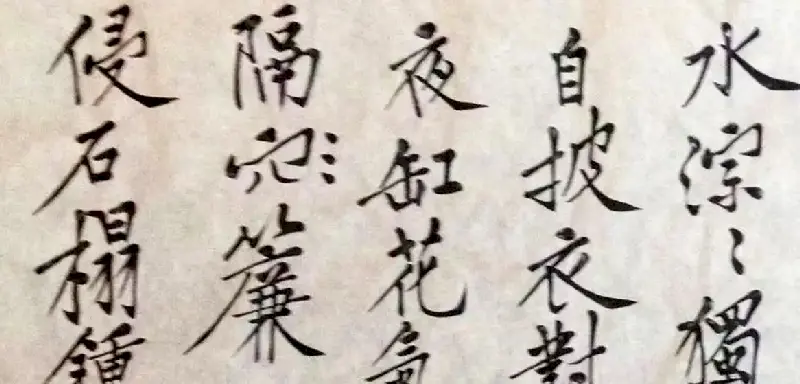 水淙〻獨
自披衣對
夜缸花
隔簾
侵石榻鍾